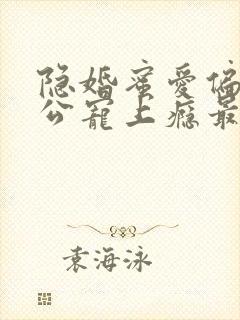 隐婚蜜爱偏
公宠上瘾最
袁海泳